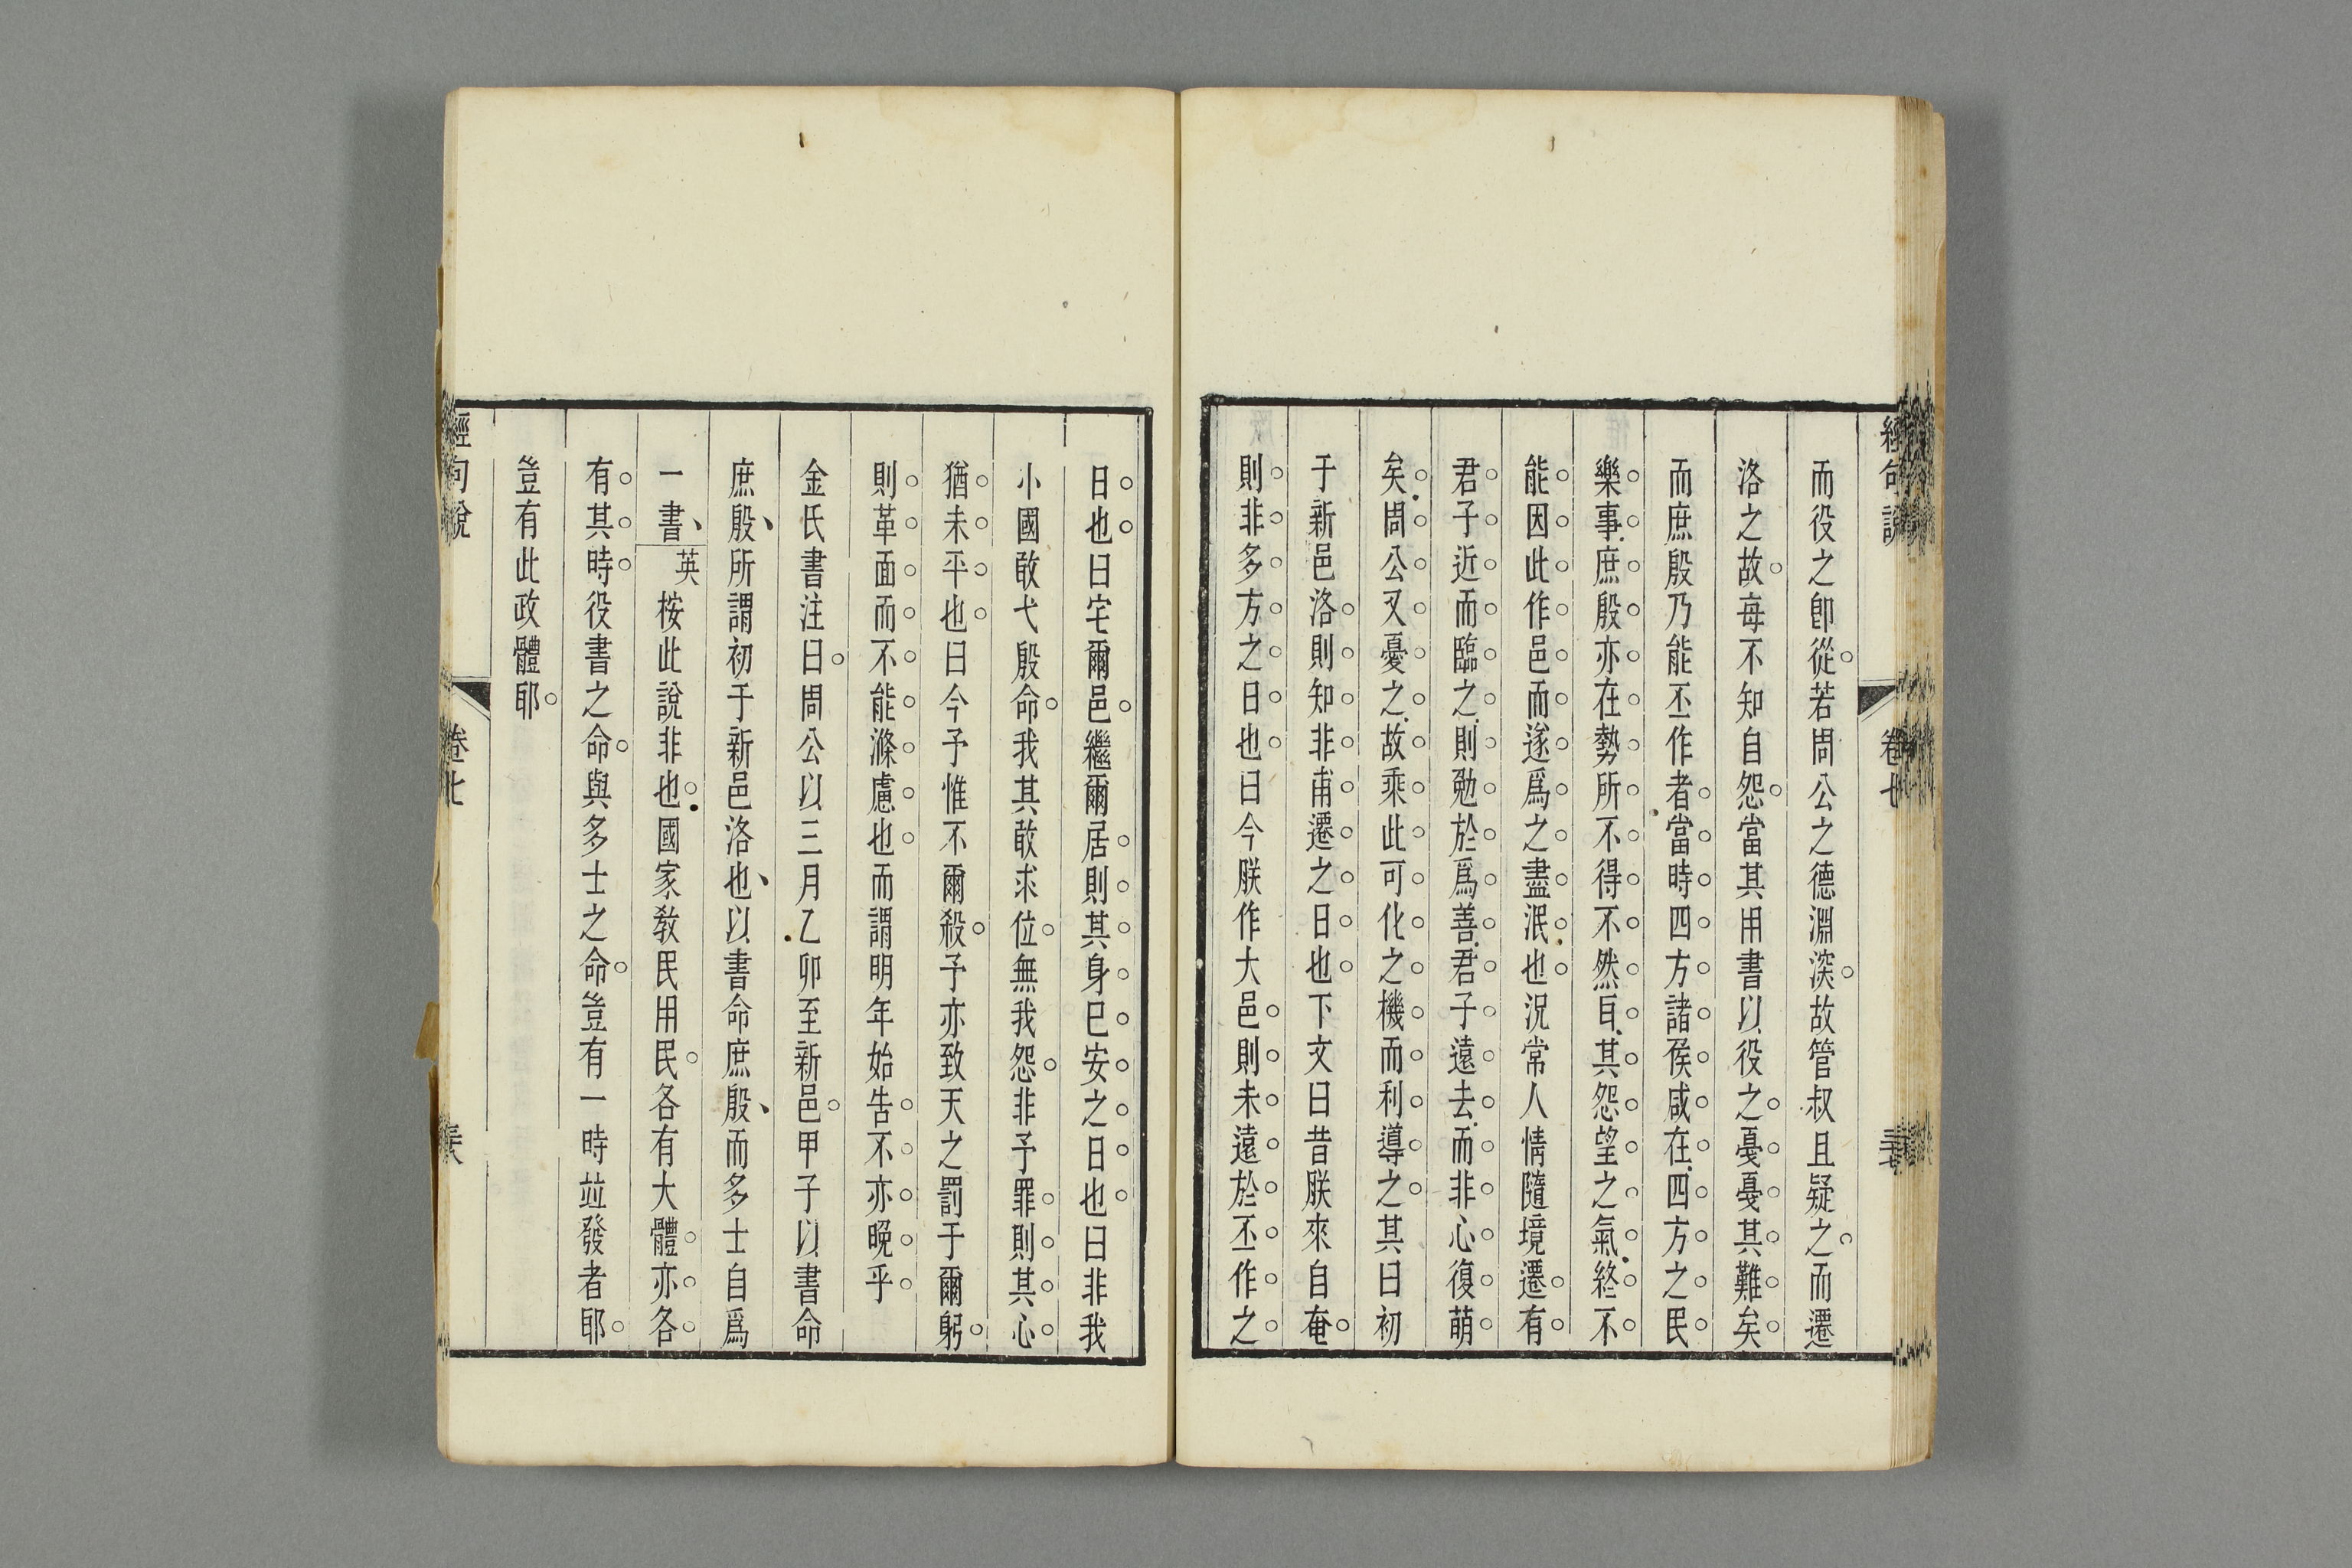 經句說
卷七
而役之卽從若周公之德淵深故管叔且疑之而遷
洛之故每不知自怨當其用書以役之憂憂其難矣
而庶殷乃能丕作者當時四方諸侯咸在四方之民
樂事庶殷亦在勢所不得不然耳其怨望之氣終不
能因此作邑而遂爲之盡泯也況常人情隨境遷有
君子近而臨之則勉於爲善君子遠去而非心復萌
矣周公又憂之故乘此可化之機而利導之其曰初
于新邑洛則知非甫遷之日也下文曰昔朕來自奄
則非多方之日也曰今朕作大邑則未遠於丕作之
日也曰宅爾邑繼爾居則其身已安之日也曰非我
小國敢弋殷命我其敢求位無我怨非予罪則其心
猶未平也曰今予惟不爾殺予亦致天之罰于爾躬
則革面而不能滌慮也而謂明年始告不亦晚乎
金氏書注曰周公以三月乙卯至新邑甲子以書命
庶殷所謂初于新邑洛也以書命庶殷而多士自爲
一書英桉此說非也國家敎民用民各有大體亦各
有其時役書之命與多士之命豈有一時竝發者耶
豈有此政體耶
經句說
卷七